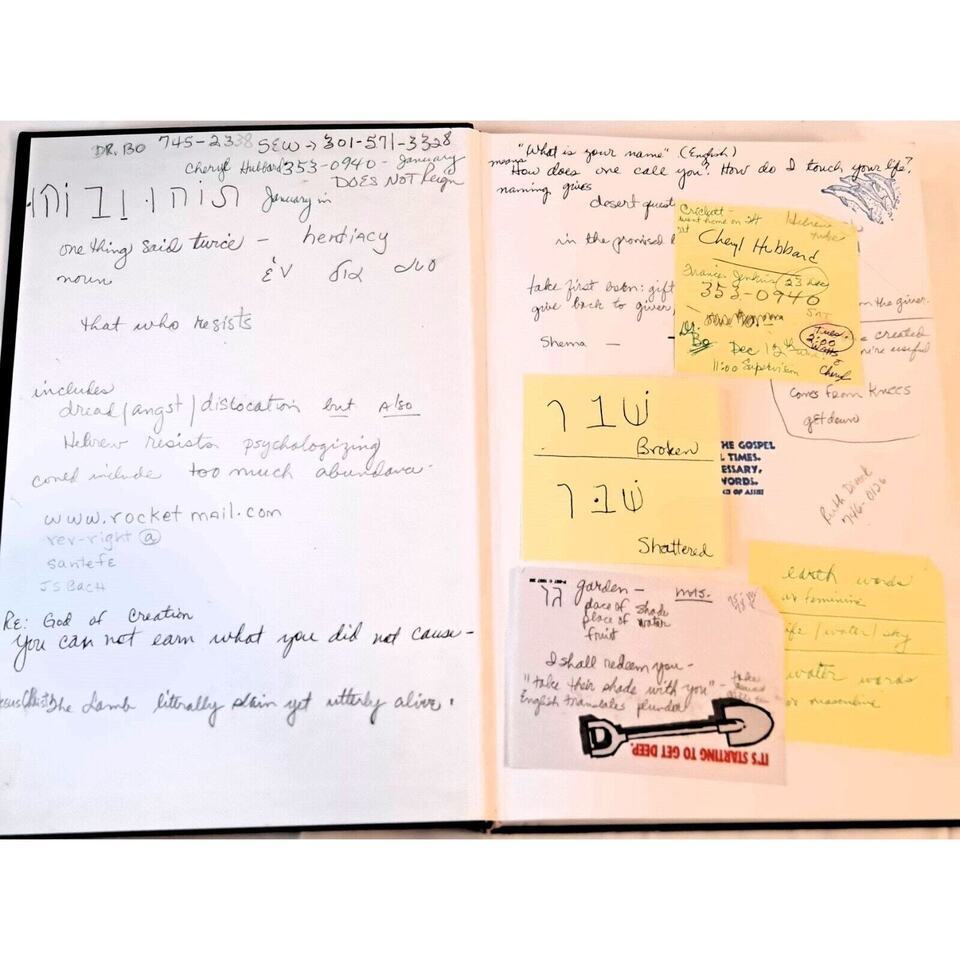 DR. BO 745-2338 SEW → 301-571-3328
Cheryl Hubbard 353-0940 - January
DOES NOT Reign
January in
one thing said twice - hendiacy
noun ἑν δια δυο
that who resists
includes
dread/angst/dislocation but Also
Hebrew resists psychologizing
could include too much abundance.
www.rocketmail.com
rev-right @
santefe
JSBach
Re: God of Creation
You can not earn what you did not cause -
The Lamb literally slain yet utterly alive.
"What is your name" (English)
means
How does one call you? How do I touch your life?
naming gives
desert quest
in the promised
take first born: gift
give back to giver
Shema -
Crickett -
went home on
Hebrew
Cheryl Hubbard
Frances Jenkins 23 Dec
353-0940
Dr. Bo
Dec 12
11:00 Supervision
Tues.
2:00
Watts
Cheryl
m the giver.
created
useful
comes from knees
get down
שבר
Broken
שבר
Shattered
HE GOSPEL
L TIMES.
ESSARY,
WORDS.
IS OF ASSISI
Ruth
746-0126
גן garden - mas.
place of shade
place of water
fruit
I shall redeem you -
"take their shade with you" -
English translates plunder
IT'S STARTING TO GET DEEP.
earth words
as feminine
life/water/sky
water words
or masculine